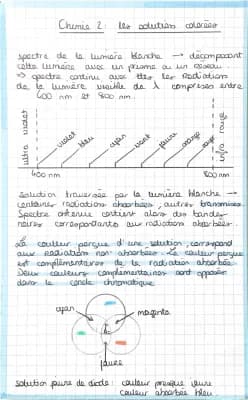 Chimie 2 : les solution colorées
spectre de la lumière blanche → décomposant
cette lumière avec un prisme ou un réseau
⇒ spectre continu avec ttes les radiations
de la lumière visible de λ comprises entre
400 nm et 800 nm.
ultra violet
violet
bleu
cyan
vert
jaune
orange
rouge
infra rouge
400 nm
800 nm
solution traversée par la lumière blanche →
certaines radiations absorbées, autres transmises
Spectre obtenue contient alors des bandes
noires correspondants aux radiations absorbées.
La couleur perçue d'une solution correspond
aux radiations non absorbées. La couleur perçue
est complémentaires de la radiation absorbée.
Deux couleurs complémentaires sont opposées
dans le cercle chromatique.
cyan
magenta
jaune
solution jaune de diode : couleur perçue jaune
couleur absorbée bleu